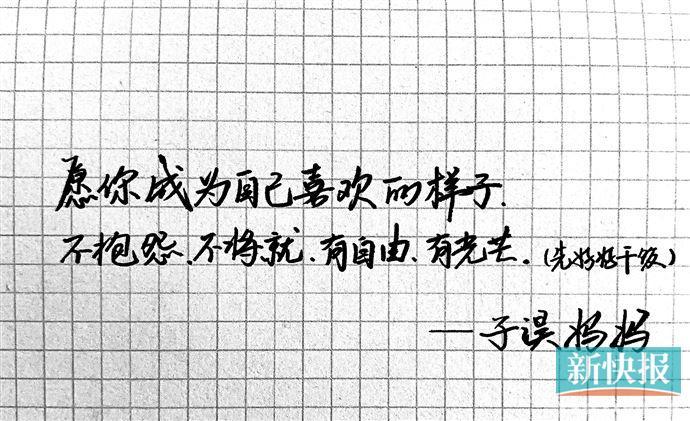 愿你成为自己喜欢的样子.
不抱怨、不将就、有自由、有光芒.(先好好干饭)
——子淏妈妈
新快报